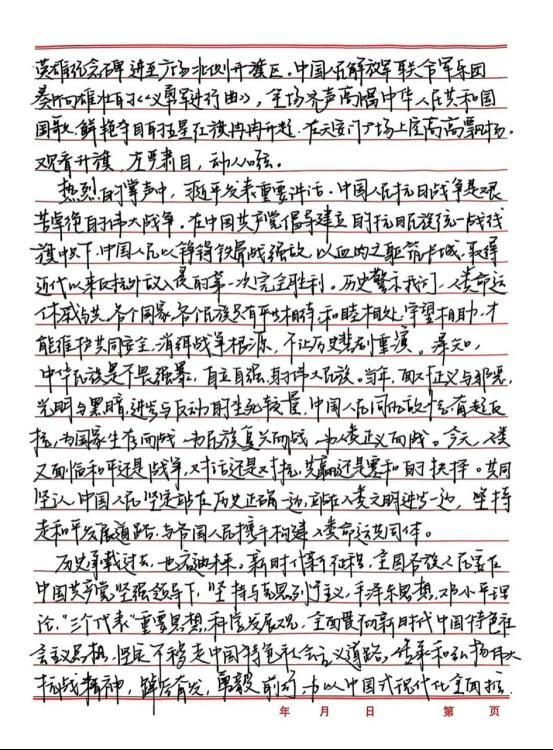 英雄纪念碑进至广场北侧升旗区。中国人民解放军联合军乐团
奏响雄壮的《义勇军进行曲》,全场齐声高唱中华人民共和国
国歌。鲜艳夺目的五星红旗冉冉升起,在天安门广场上空高高飘扬。
观看升旗,庄严肃目,动人心弦。
热烈的掌声中,习近平发表重要讲话。中国人民抗日战争是艰
苦卓绝的伟大战争。在中国共产党倡导建立的抗日民族统一战线
旗帜下,中国人民以铮铮铁骨战强敌,以血肉之躯筑长城,取得
近代以来反抗外敌入侵的第一次完全胜利。历史警示我们,人类命运
休戚与共,各个国家、各个民族只有平等相待、和睦相处、守望相助,才
能维护共同安全,消弭战争根源,不让历史悲剧重演。
中华民族是不畏强暴、自立自强的伟大民族。当年,面对正义与邪恶、
光明与黑暗、进步与反动的生死较量,中国人民同仇敌忾、奋起反
抗,为国家生存而战,为民族复兴而战,为人类正义而战。今天,人类
又面临和平还是战争、对话还是对抗、共赢还是零和的抉择。
坚认,中国人民坚定站在历史正确一边、站在人类文明进步一边,坚持
走和平发展道路,与各国人民携手构建人类命运共同体。
历史承载过去,也启迪未来。新时代新征程,全国各族人民要在
中国共产党坚强领导下,坚持马克思列宁主义、毛泽东思想、邓小平理
论、“三个代表”重要思想、科学发展观,全面贯彻新时代中国特色社
会主义思想,坚定不移走中国特色社会主义道路,传承和弘扬伟大
抗战精神,踔厉奋发、勇毅前行,为以中国式现代化全面推
年 月 日 第 页